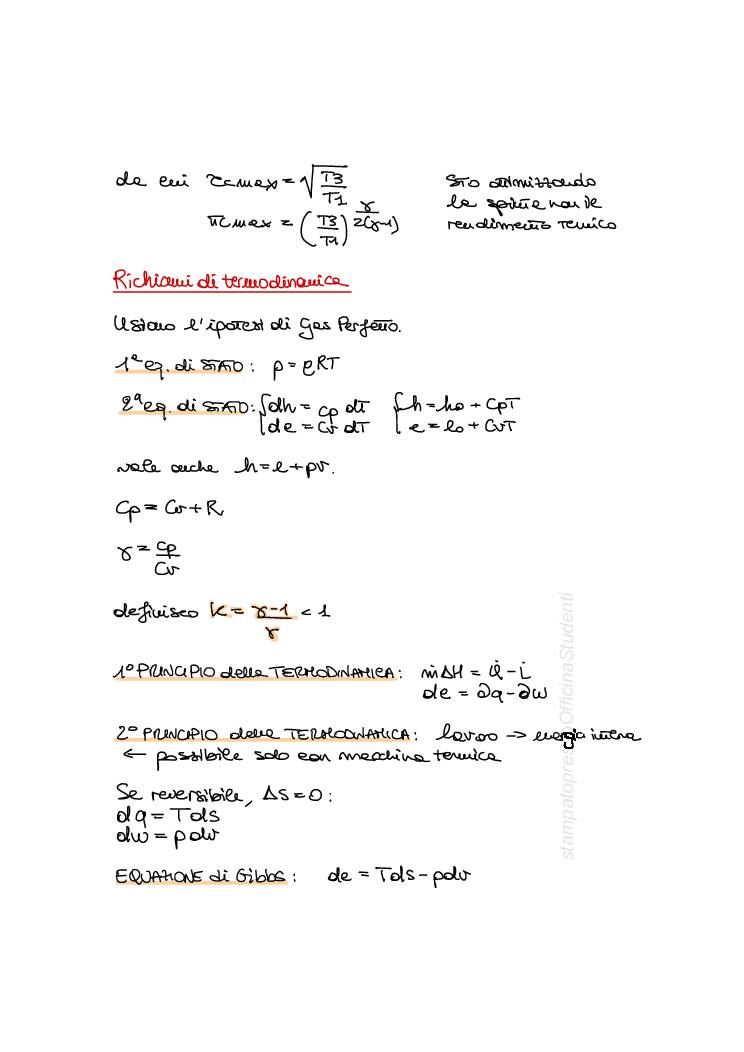 da cui τc max = √(T3/T1)
πc max = (T3/T1)^(γ/2(γ-1))
sto ottimizzando
la spinta non il
rendimento termico
Richiami di termodinamica
Usiamo l'ipotesi di Gas Perfetto.
1ª eq. di STATO: p = ρRT
2ª eq. di STATO: { dh = cp dT { h = h0 + CpT
{ de = Cv dT { e = e0 + CvT
vale anche h = e + pv.
Cp = Cv + R
γ = Cp/Cv
definisco K = γ-1/γ < 1
1º PRINCIPIO della TERMODINAMICA: ṁΔH = Q̇ - L̇
de = ∂q - ∂w
2º PRINCIPIO della TERMODINAMICA: lavoro -> energia interna
← possibile solo con macchina termica
Se reversibile, ΔS = 0:
dq = Tds
dw = pdv
EQUAZIONE di Gibbs: de = Tds - pdv